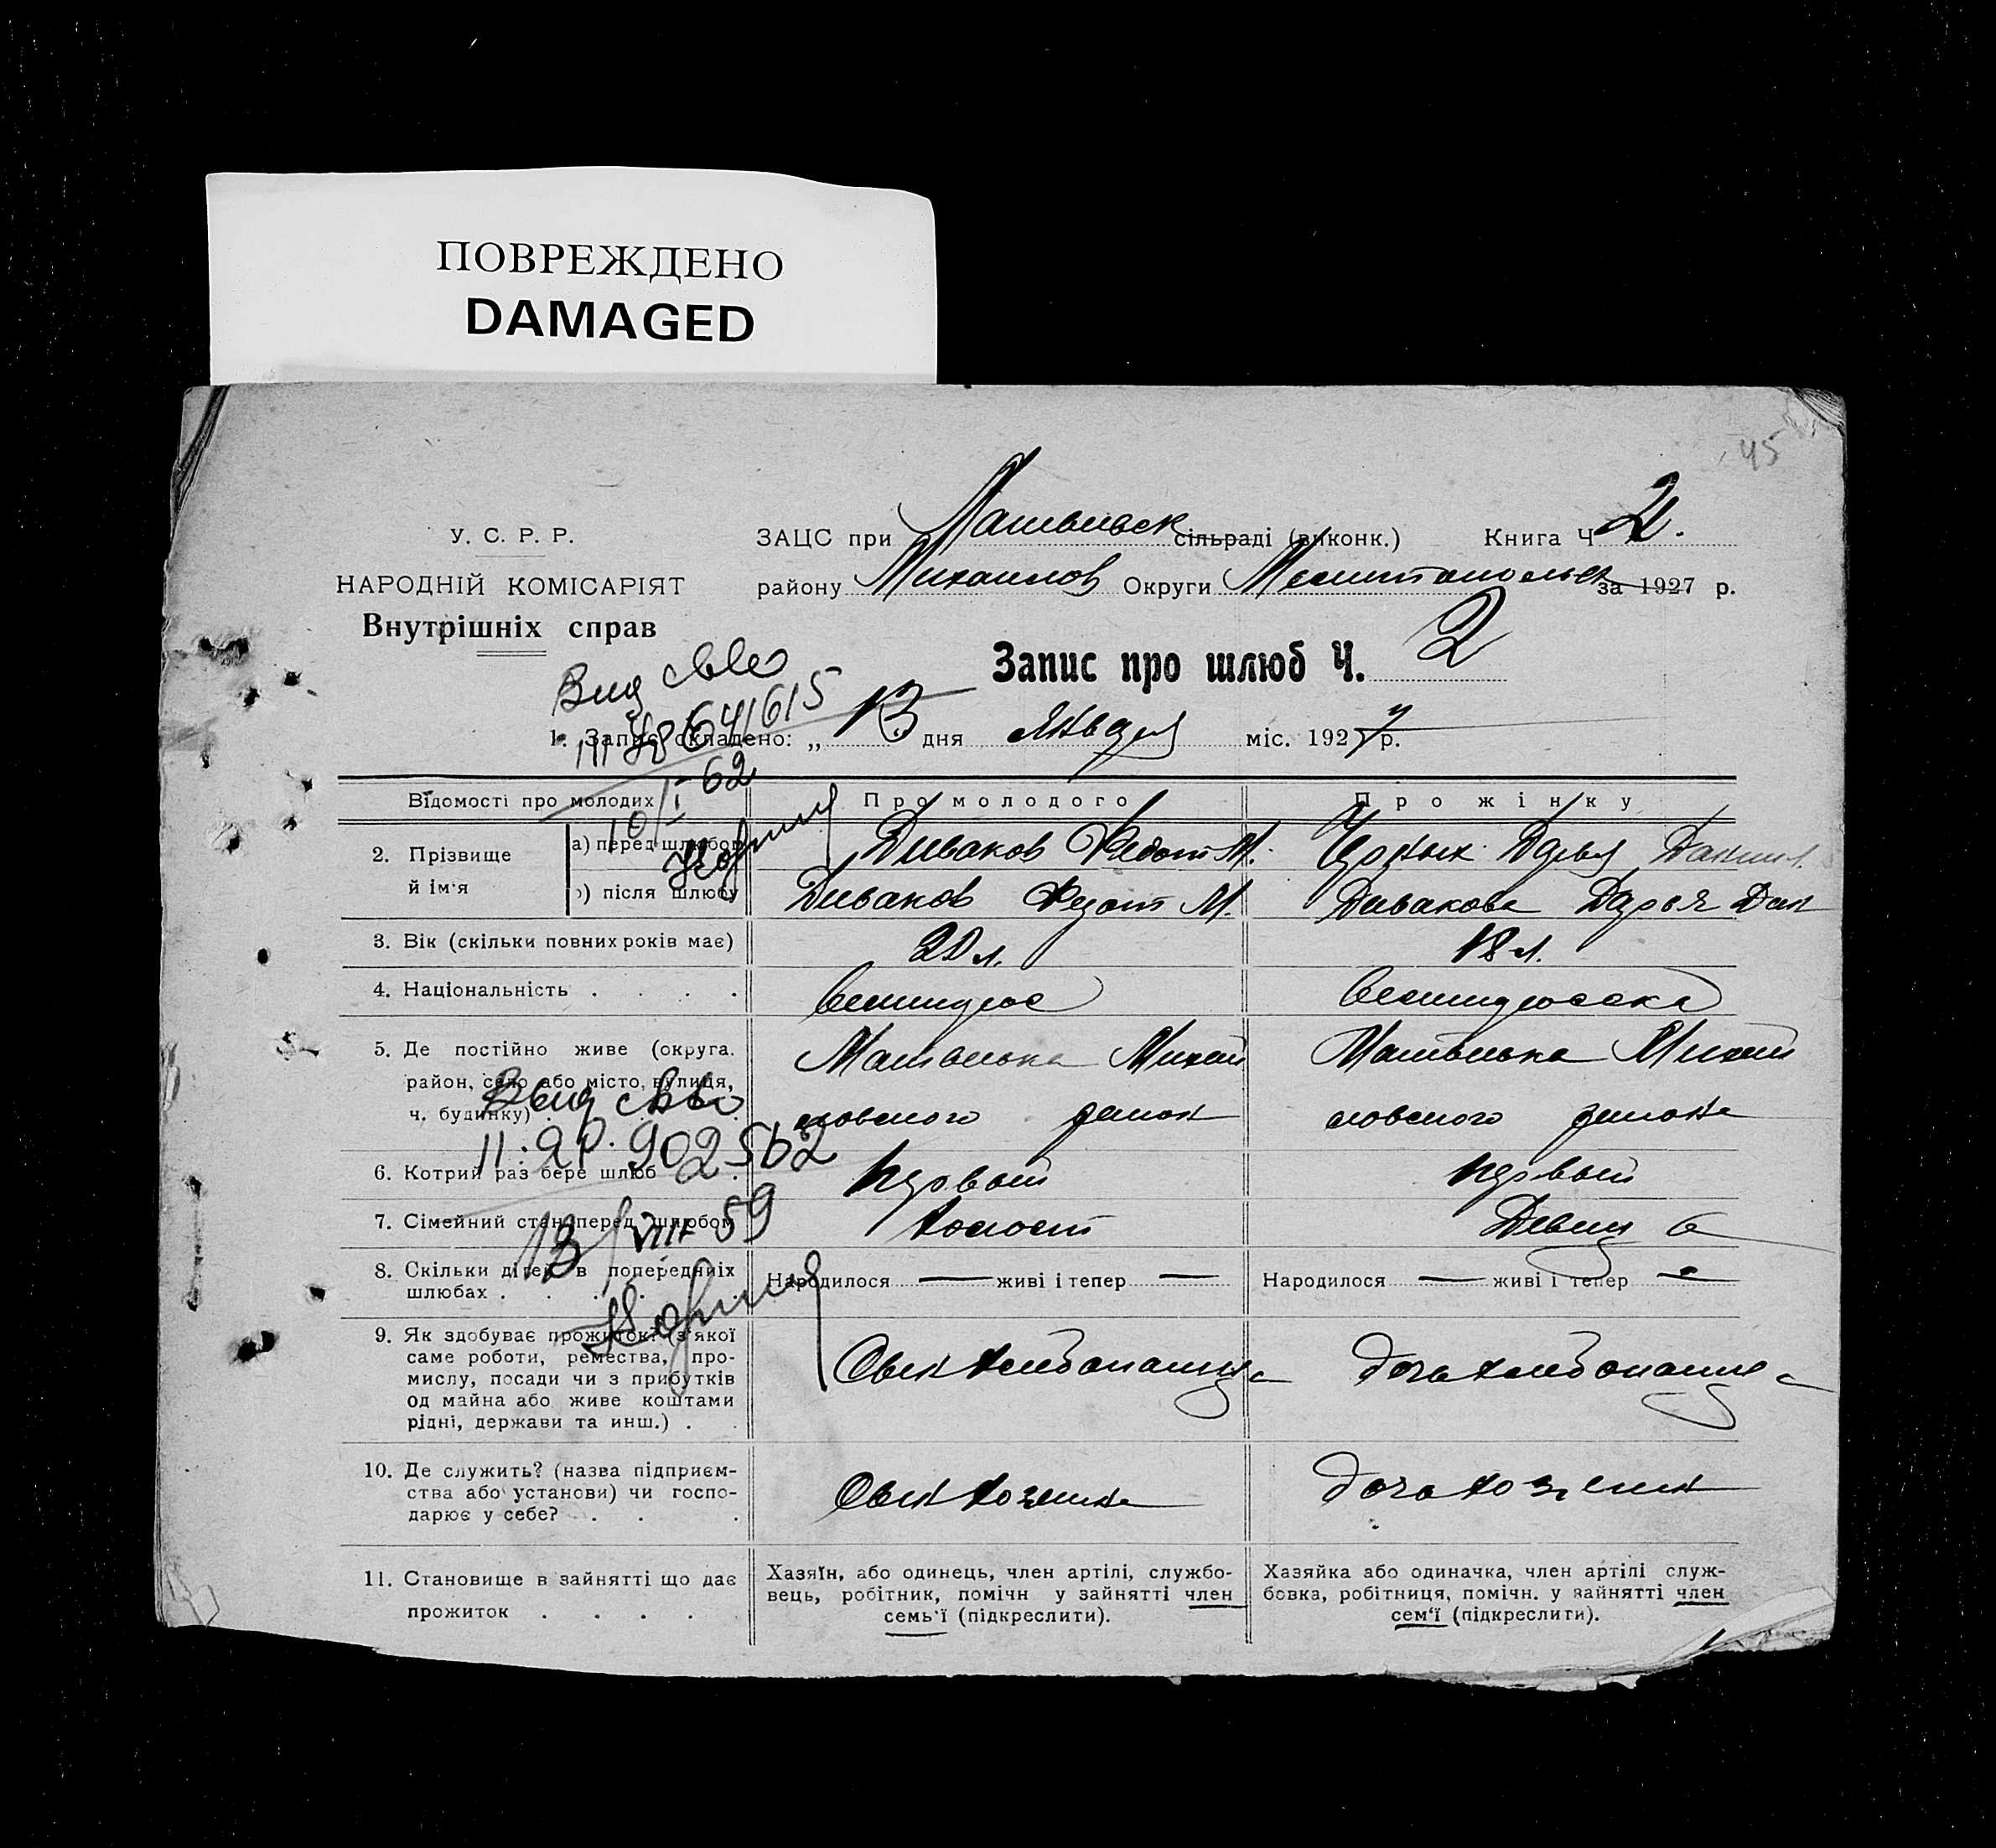 ПОВРЕЖДЕНО
DAMAGED
45
У. С. Р. Р.
НАРОДНІЙ КОМІСАРІЯТ
Внутрішніх справ
ЗАЦС при Матвеевск сільраді (виконк.) Книга Ч 2.
району Михайлов Округи Мелитопольск за 1927 р.
Запис про шлюб Ч. 2
Выд св-во
10/I-62
1. Запис складено: „ 13 дня Января міс. 1927 р.
Відомості про молодих
Про молодого
Про жінку
2. Прізвище й ім'я
а) перед шлюбом
Диваков Федот М.
Дарья Данил.
б) після шлюбу
Диваков Федот М.
Дивакова Дарья Дан
3. Вік (скільки повних років має)
20 л.
18 л.
4. Національність
великорос
великоросска
5. Де постійно живе (округа, район, село або місто, вулиця, ч. будинку)
Матвеевка Михай
ловского район
Матвеевка Михай
ловского района
Выд св-во
902502
13/VIII-59
6. Котрий раз бере шлюб
первый
первый
7. Сімейний стан перед шлюбом
холост
Девица
8. Скільки дітей в попередніх шлюбах
Народилося — живі і тепер —
Народилося — живі і тепер —
9. Як здобуває прожиток? (з якої
саме роботи, ремества, про-
мислу, посади чи з прибутків
од майна або живе коштами
рідні, держави та инш.)
Сын хлебопашца
дочь хлебопашца
10. Де служить? (назва підприєм-
ства або установи) чи госпо-
дарює у себе?
Сын хозяина
дочь хозяин
11. Становище в зайнятті що дає
прожиток
Хазяїн, або одинець, член артілі, службо-
вець, робітник, помічн у зайнятті член
семь'ї (підкреслити).
Хазяйка або одиначка, член артілі служ-
бовка, робітниця, помічн. у зайнятті член
сем'ї (підкреслити).